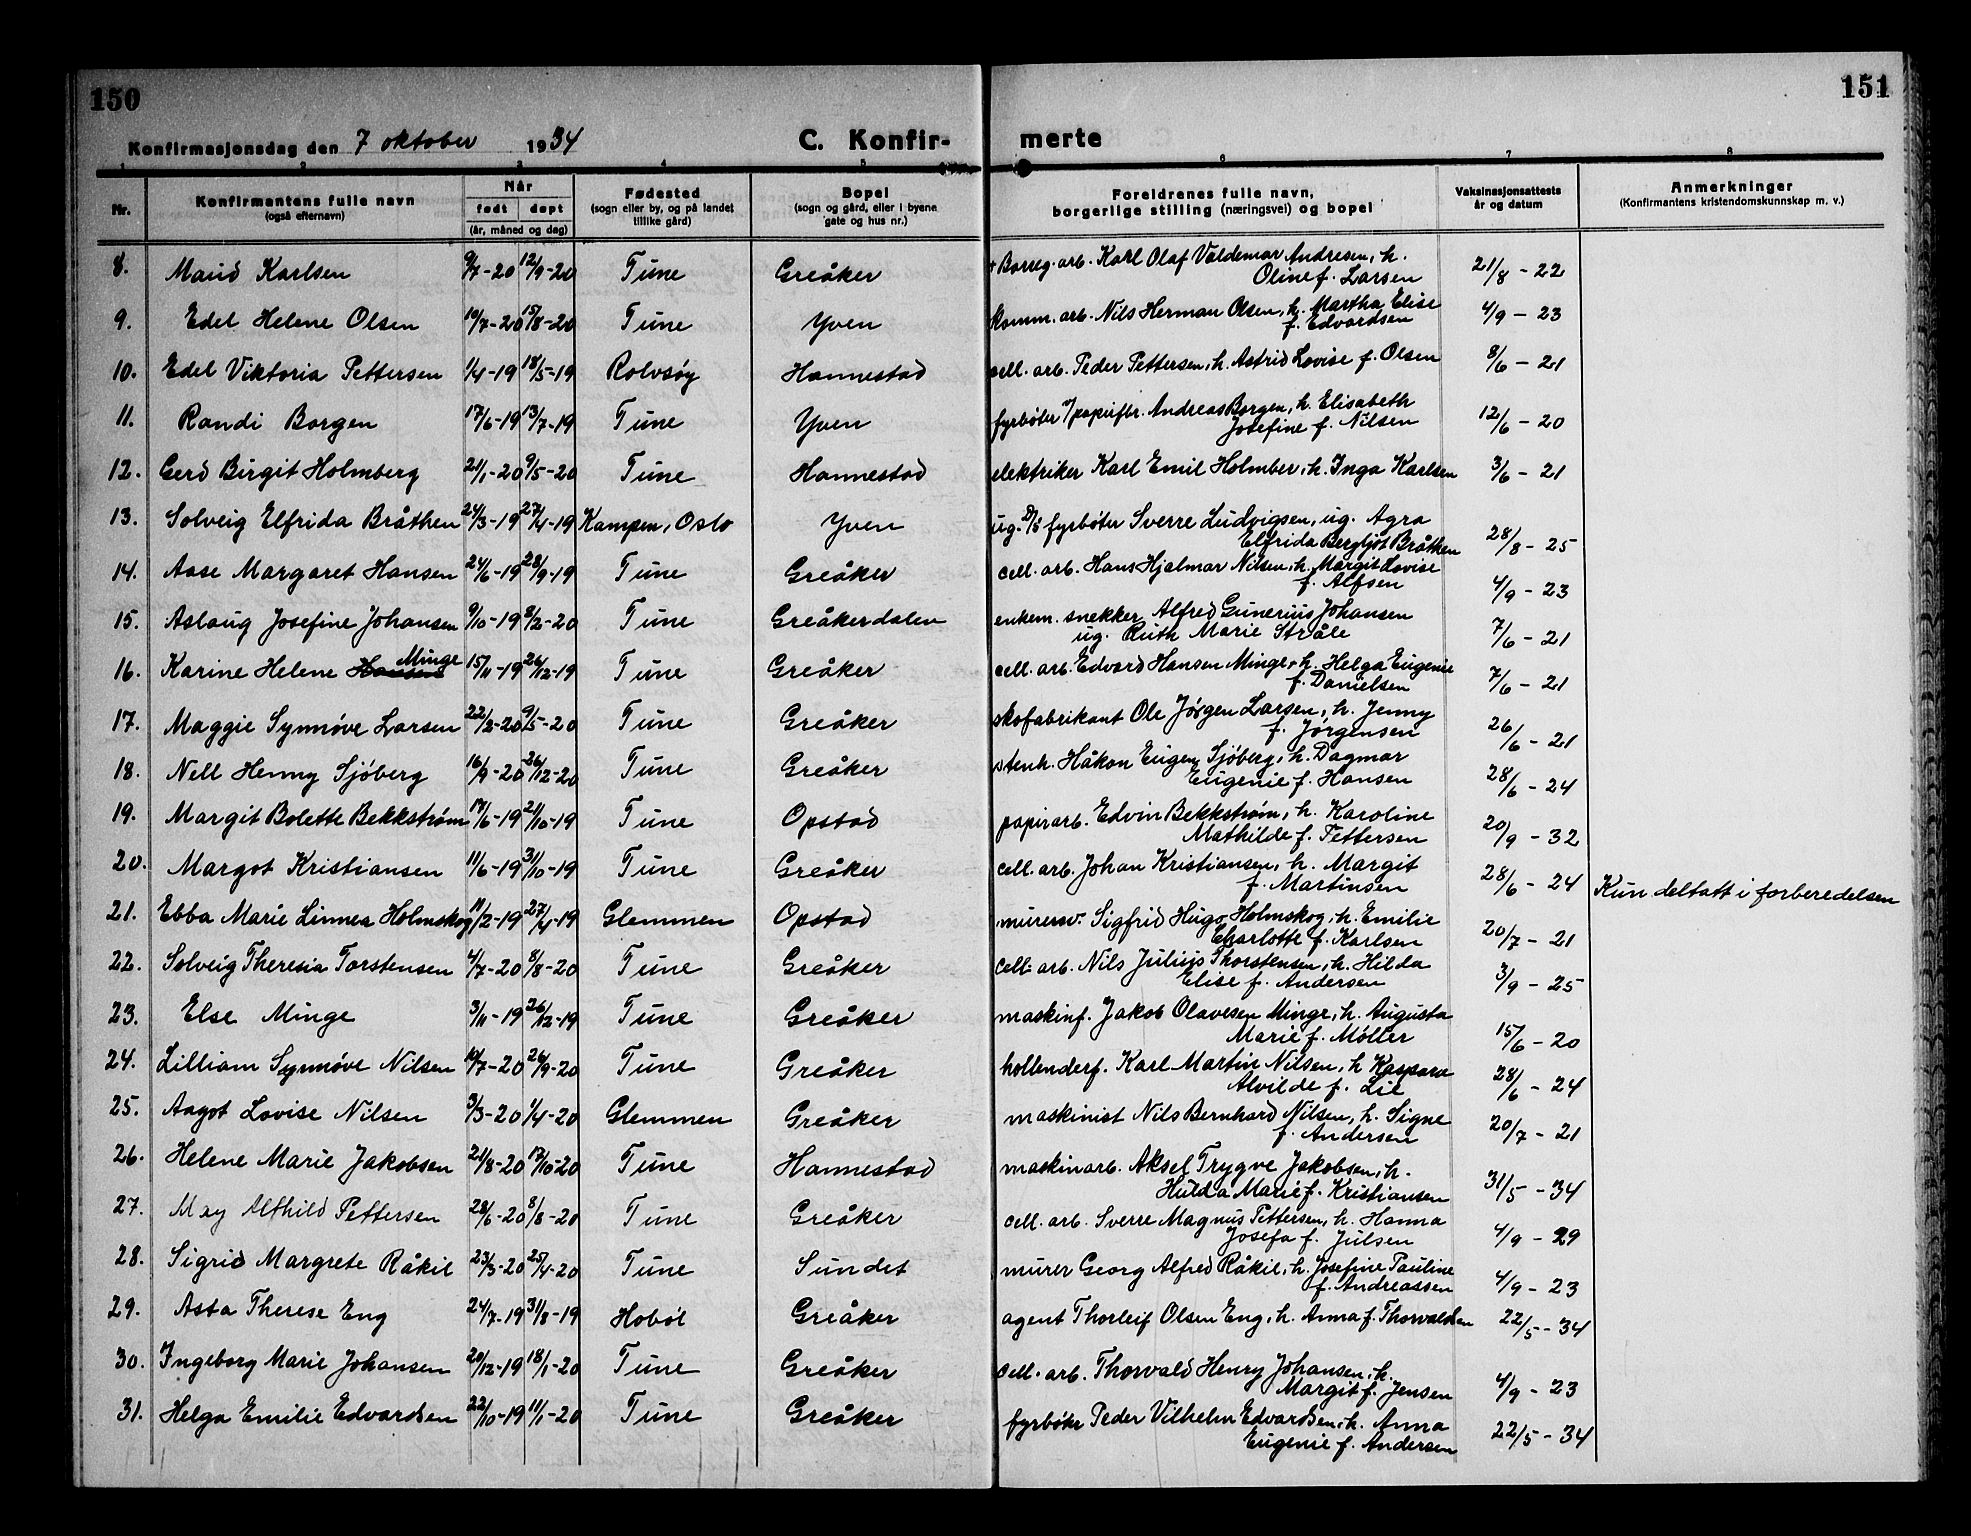 150
151
Konfirmasjonsdag den 7 oktober 1934
C. Konfir-
merte
1 2 3 4 5 6 7 8
Nr.
Konfirmantens fulle navn
(også efternavn)
Når
født døpt
(år, måned og dag)
Fødested
(sogn eller by, og på landet
tillike gård)
Bopel
(sogn og gård, eller i byene
gate og hus nr.)
Foreldrenes fulle navn,
borgerlige stilling (næringsvei) og bopel
Vaksinasjonsattests
år og datum
Anmerkninger
(Konfirmantens kristendomskunnskap m. v.)
8. Maud Karlsen 9/7-20 12/9-20 Tune Greåker arb. Karl Olaf Valdemar Andresen, h.
Oline f. Larsen 21/8-22
9. Edel Helene Olsen 10/7-20 15/8-20 Tune Yven komm. arb. Nils Herman Olsen, h. Martha Elise
f. Edvardsen 4/9-23
10. Edel Viktoria Pettersen 1/4-19 18/5-19 Rolvsøy Hannestad cell. arb. Peder Pettersen, h. Astrid Lovise f. Olsen 8/6-21
11. Randi Borgen 17/6-19 13/7-19 Tune Yven fyrbøter v/papirfbr. Andreas Borgen, h. Elisabeth
Josefine f. Nilsen 12/6-20
12. Gerd Birgit Holmberg 21/1-20 9/5-20 Tune Hannestad elektriker Karl Emil Holmber, h. Inga Karlsen 3/6-21
13. Solveig Elfrida Bråthen 24/3-19 27/4-19 Kampen, Oslo Yven ug. D/S fyrbøter Sverre Ludvigsen, ug. Agra
Elfrida Bergljot Bråthen 28/8-25
14. Aase Margaret Hansen 24/6-19 28/9-19 Tune Greåker cell. arb. Hans Hjalmar Nilsen, h. Margit Lovise
f. Alfsen 4/9-23
15. Aslaug Josefine Johansen 9/10-19 8/2-20 Tune Greåkerdalen enkem. snekker Alfred Gunerius Johansen
ug. Ruth Marie Stråle 7/6-21
16. Karine Helene Hansen Minge 15/11-19 26/12-19 Tune Greåker cell. arb. Edvard Hansen Minge, h. Helga Eugenie
f. Danielsen 7/6-21
17. Maggie Synnøve Larsen 22/2-20 9/5-20 Tune Greåker skofabrikant Ole Jørgen Larsen, h. Jenny
f. Jørgensen 26/6-21
18. Nell Henny Sjøberg 16/9-20 26/12-20 Tune Greåker stenh. Håkon Eugen Sjøberg, h. Dagmar
Eugenie f. Hansen 28/6-24
19. Margit Bolette Bekkstrøm 17/6-19 21/10-19 Tune Opstad papirarb. Edvin Bekkstrøm, h. Karoline
Mathilde f. Pettersen 20/9-32
20. Margot Kristiansen 11/6-19 31/10-19 Tune Greåker cell. arb. Johan Kristiansen, h. Margit
f. Martinsen 28/6-24 Kun deltatt i forberedelsen
21. Ebba Marie Linnea Holmskog 11/2-19 27/4-19 Glemmen Opstad murersv. Sigfrid Hugo Holmskog, h. Emilie
Charlotte f. Karlsen 20/7-21
22. Solveig Theresia Torstensen 4/7-20 8/8-20 Tune Greåker cell. arb. Nils Julius Thorstensen, h. Hilda
Elise f. Andersen 3/9-25
23. Else Minge 3/11-19 26/12-19 Tune Greåker maskinf. Jakob Olavesen Minge, h. Augusta
Marie f. Møller 15/6-20
24. Lilliam Synnøve Nilsen 10/7-20 26/9-20 Tune Greåker hollenderf. Karl Martin Nilsen, h. Kaspara
Alvilde f. Lie 28/6-24
25. Aagot Lovise Nilsen 3/3-20 1/4-20 Glemmen Greåker maskinist Nils Bernhard Nilsen, h. Signe
f. Andersen 20/7-21
26. Helene Marie Jakobsen 21/8-20 17/10-20 Tune Hannestad maskinarb. Aksel Trygve Jakobsen, h.
Hulda Marie f. Kristiansen 31/5-34
27. May Alfhild Pettersen 28/6-20 8/8-20 Tune Greåker cell. arb. Sverre Magnus Pettersen, h. Hanna
Josefa f. Julsen 4/9-29
28. Sigrid Margrete Råkil 23/3-20 25/4-20 Tune Sundet murer Georg Alfred Råkil, h. Josefine Pauline
f. Andreassen 4/9-23
29. Asta Therese Eng 24/7-19 31/8-19 Hobøl Greåker agent Thorleif Olsen Eng, h. Anna f. Thorvaldsen 22/5-34
30. Ingeborg Marie Johansen 20/12-19 18/1-20 Tune Greåker cell. arb. Thorvald Henry Johansen, h.
Margit f. Jensen 4/9-23
31. Helga Emilie Edvardsen 22/10-19 11/1-20 Tune Greåker fyrbøter Peder Vilhelm Edvardsen, h. Anna
Eugenie f. Andersen 22/5-34